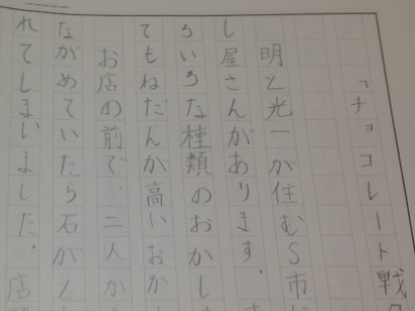 「チョコレート戦
明と光一が住むS市に
し屋さんがあります。
ろいろな種類のおかし
てもねだんが高いおか
お店の前で、二人が
ながめていたら石がと
れてしまいました。店